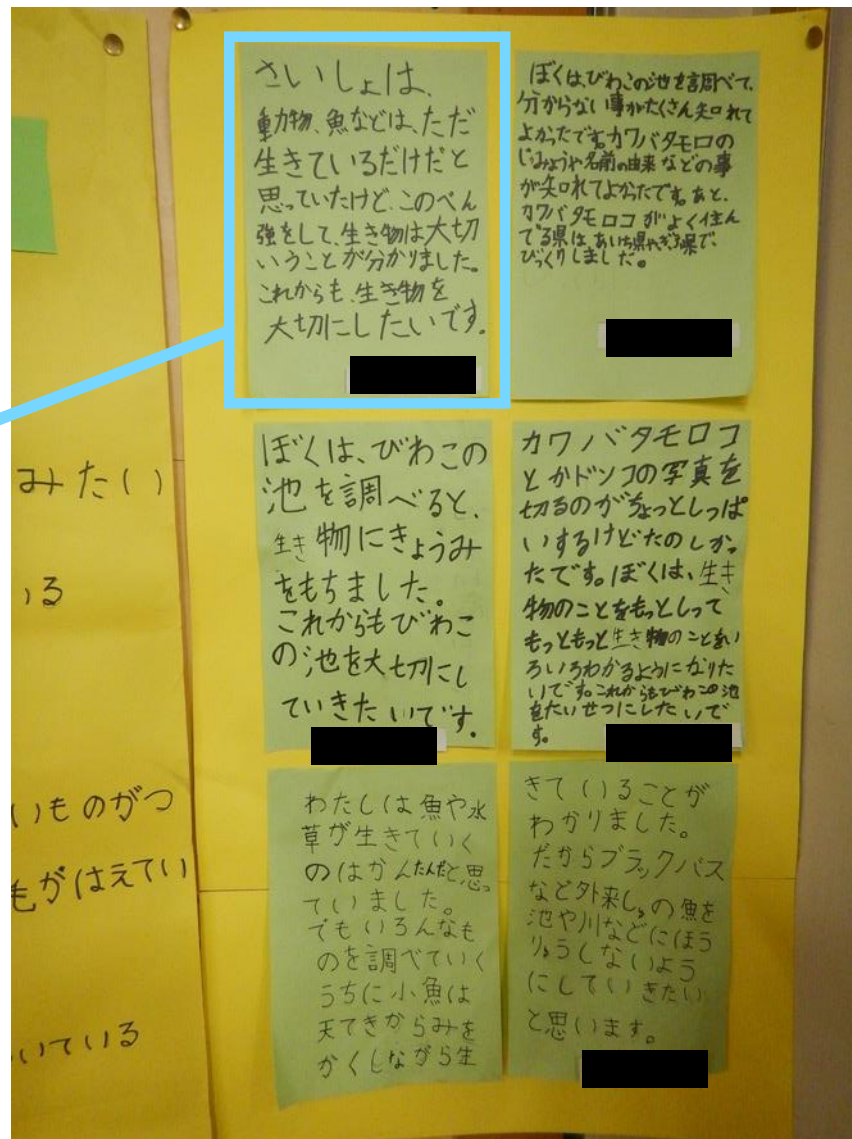 みたい
いる
いものがつ
もがはえてい
いている
さいしょは、
動物、魚などは、ただ
生きているだけだと
思っていたけど、このべん
強をして、生き物は大切
いうことが分かりました。
これからも、生き物を
大切にしたいです。
ぼくは、びわこの池を調べて、
分からない事がたくさん知れて
よかったです。カワバタモロコの
じゅみょうや名前の由来などの事
が知れてよかったです。あと、
カワバタモロコがよく住ん
でる県は、あいち県やぎふ県で、
びっくりしました。
ぼくは、びわこの
池を調べると、
生き物にきょうみ
をもちました。
これからもびわこ
の池を大切にし
ていきたいです。
カワバタモロコ
とかドンコの写真を
切るのがちょっとしっぱ
いするけどたのしかっ
たです。ぼくは、生き
物のことをもっとしって
もっともっと生き物のことをい
ろいろわかるようになりた
いです。これからもびわこの池
をたいせつにしたいで
す。
わたしは魚や水
草が生きていく
のはかんたんだと思っ
ていました。
でもいろんなも
のを調べていく
うちに小魚は
天てきからみを
かくしながら生
きていることが
わかりました。
だからブラックバス
など外来しゅの魚を
池や川などにほう
りゅうしないよう
にしていきたい
と思います。